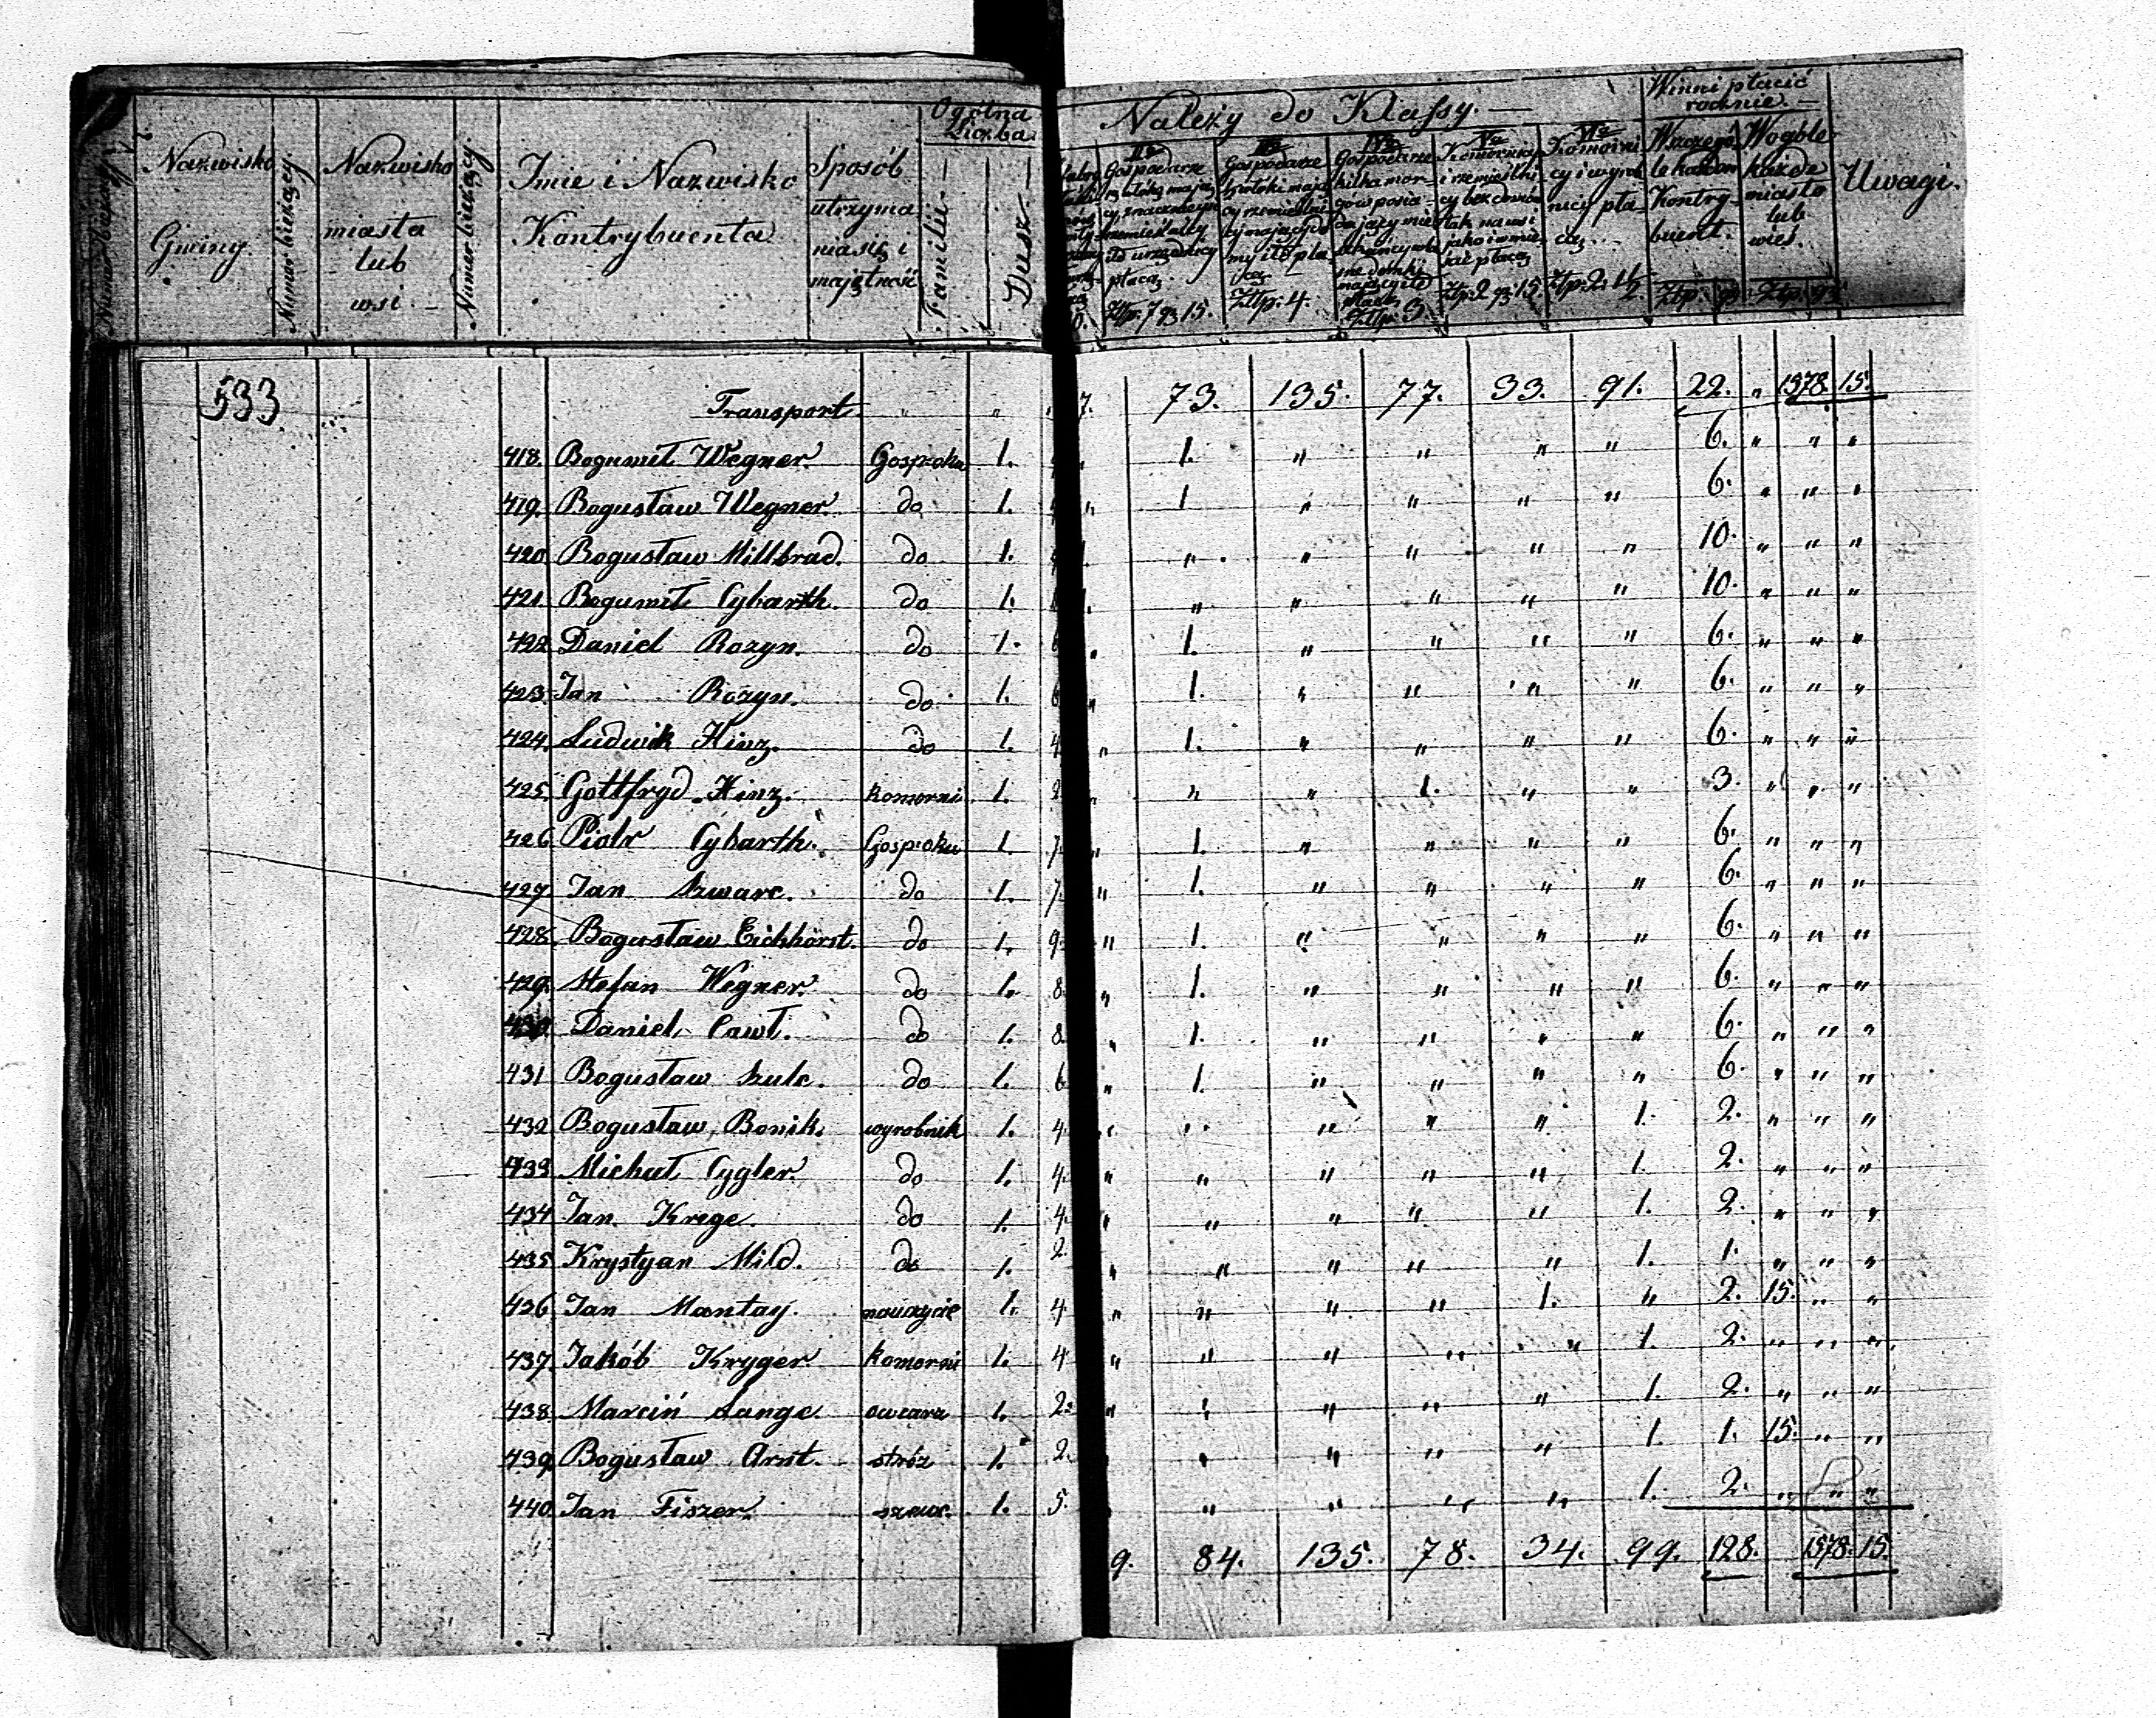 Numer bieżący
Nazwisko
Gminy.
Numer bieżący.
Nazwisko
miasta
lub
wsi. –
Numer bieżący
Imie i Nazwisko
Kontrybuenta
Sposób
utrzyma
nia się i
majętność
Ogólna
Liczba
Familii –
Dusz –
Należy do Klassy. –
IIa
Gospodarze
płacą.
Ztp. 7 gr 15.
IIIa
Gospodarze
Ztp: 4.
IVa
Gospodarze
kilka mor-
gów posia-
Ztp: 3
Va
Komornicy
i rzemieślni-
cy bez domów
tak na wsi
jako i w mie-
ście płacą
Ztp: 2 gr: 15
VIa
Komorni
cy i wyrob
nicy pła-
cą. . .
Ztp: 2: 1½
Winni płacić
rocznie. –
Wszczegó
le każden
Kontry-
buent.
Ztp: gr:
Wogóle
każde
miasto
lub
wieś.
Ztp: gr:
Uwagi.
533
Transport. " " " 7. 73. 135. 77. 33. 91. 22. " 1578. 15.
418. Bogumił Wegner. Gosp: oku 1. 1. " " " " 6. " " "
419. Bogusław Wegner do 1. " 1 " " " " 6. " " "
420 Bogusław Millbrad. do 1. 1. " " " " " 10. " " "
421. Bogumił Cybarth. do 1. 1. " " " " " 10. " " "
422 Daniel Rozyn. do 1. 6 " 1. " " " " 6. " " "
423. Jan Rozyn. do 1. 6 " 1. " " " " 6. " " "
424. Ludwik Hinz. do 1. 4 " 1. " " " " 6. " " "
425. Gottfryd Hinz. komorni 1. 2 " " " 1. " " 3. " " "
426 Piotr Cybarth. Gosp: oku 1. 7 " 1. " " " " 6. " " "
427. Jan Szwarc. do 1. 7. " 1. " " " " 6. " " "
428. Bogusław Eichhorst. do 1. 9. " 1. " " " " 6. " " "
429. Stefan Wegner. do 1. 8. " 1. " " " " 6. " " "
430. Daniel Cawł. do 1. 8. " 1. " " " " 6. " " "
431 Bogusław Szulc. do 1. 6 " 1. " " " " 6. " " "
432 Bogusław Bonik. wyrobnik 1. 4. " " " " " 1. 2. " " "
433 Michał Cygler. do 1. 4. " " " " " 1. 2. " " "
434 Jan Krege. do 1. 4. " " " " " 1. 2. " " "
435 Krystyan Mild. do 1. 2. " " " " " 1. 1. " " "
426 Jan Mantay. nauczycie 1. 4 " " " " 1. " 2. 15. " "
437. Jakób Kryger komorni 1. 4 " " " " " 1. 2. " " "
438 Marcin Lange. owczarz 1. 2. " " " " " 1. 2. " " "
439. Bogusław Arnt. stróż 1. 2. " " " " " 1. 1. 15. " "
440. Jan Fiszer. szewc. 1. 5. " " " " " 1. 2. " " "
9. 84. 135. 78. 34. 99. 128. 1578. 15.